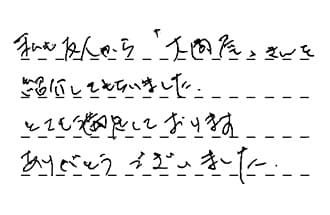 私も友人から「大関屋」さんを
紹介してもらいました.
とても満足しております
ありがとうございました.